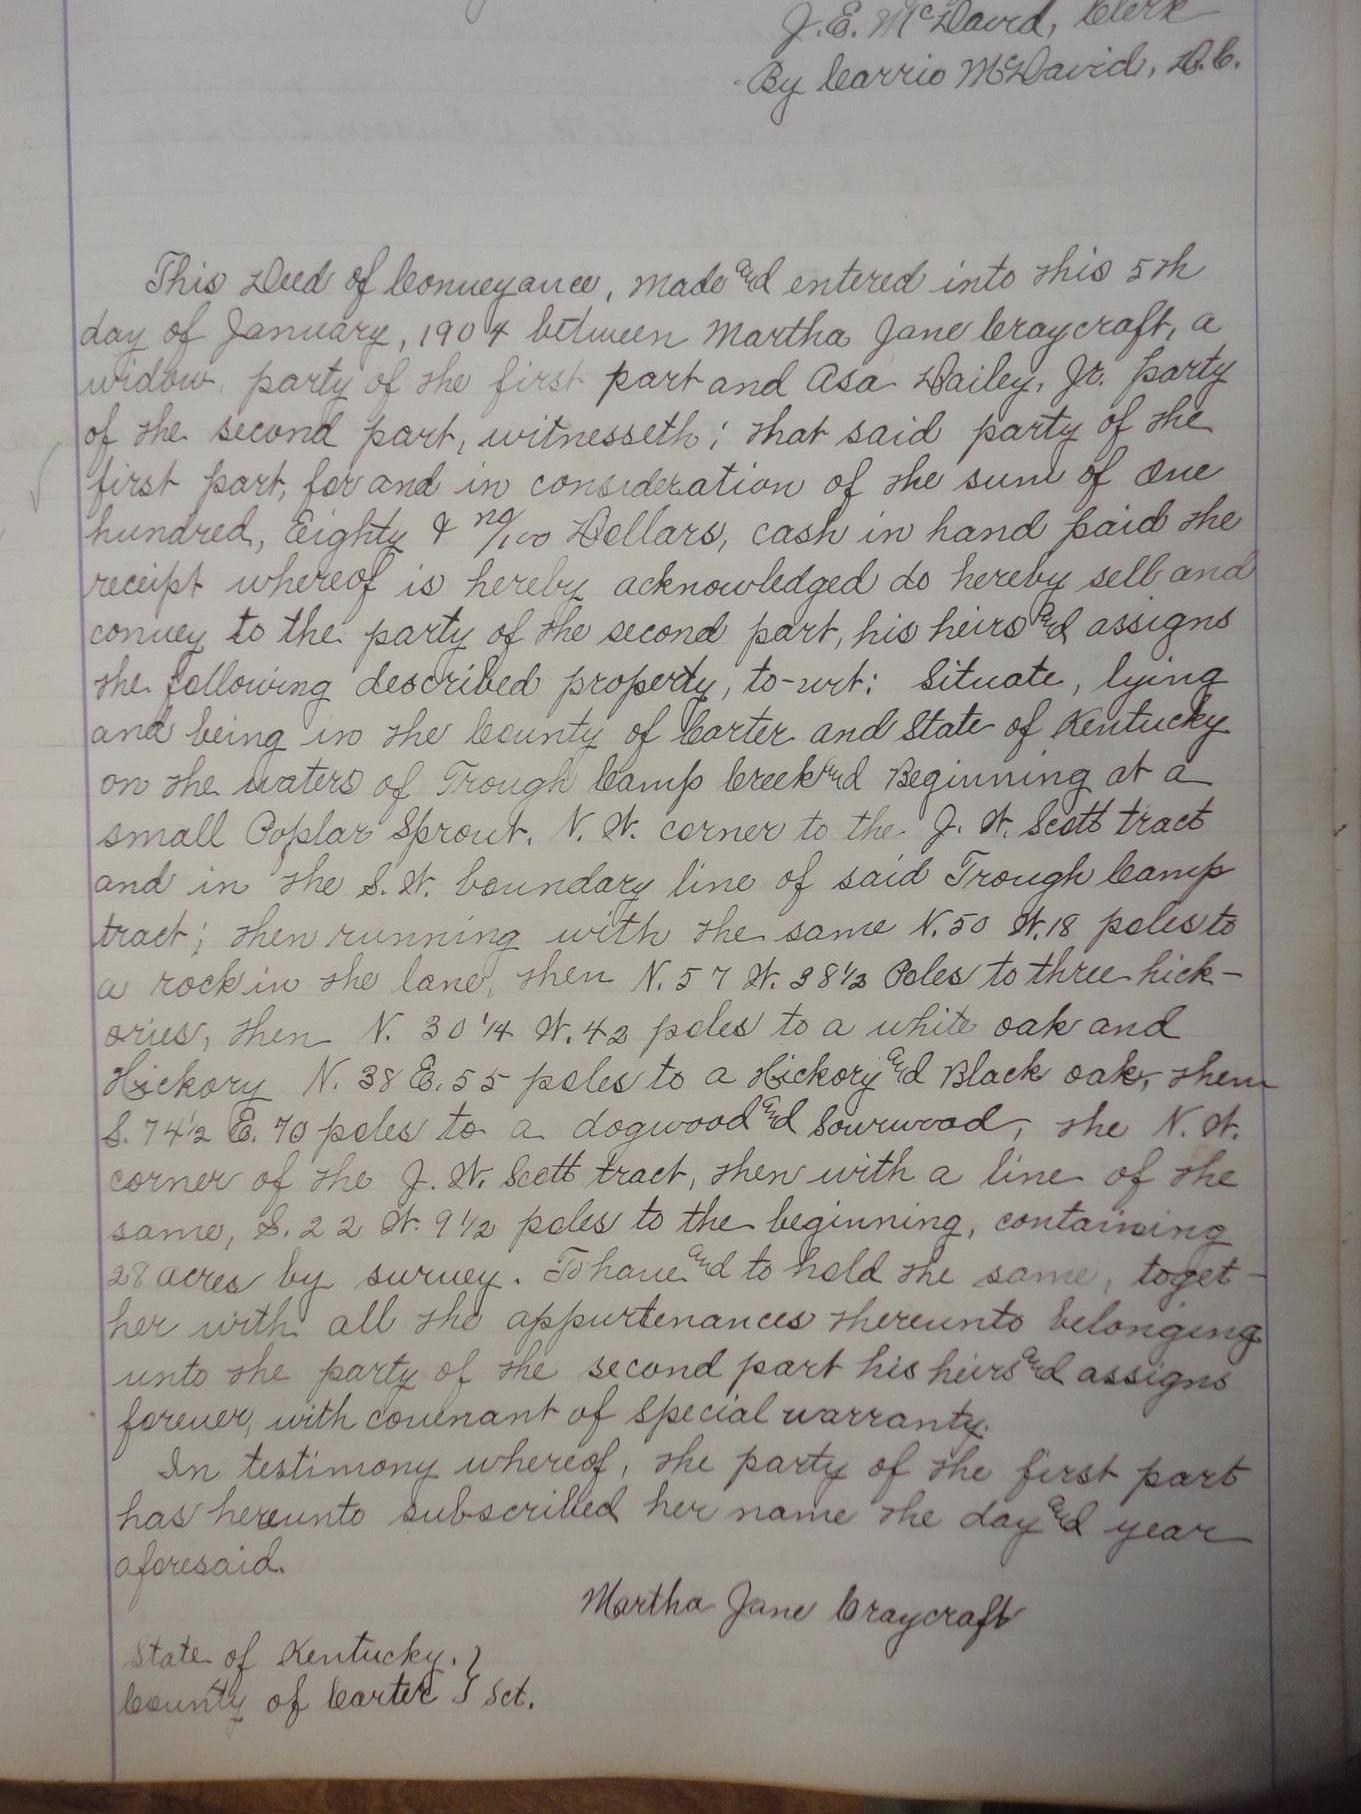 J. E. McDavid, Clerk
By Carrie McDavid, D.C.
This Deed of Conveyance, made and entered into this 5th
day of January, 1904 between Martha Jane Craycraft, a
widow, party of the first part and Asa Dailey, Jr. party
of the second part, witnesseth; that said party of the
first part, for and in consideration of the sum of One
hundred, Eighty & no/100 Dollars, cash in hand paid the
receipt whereof is hereby acknowledged do hereby sell and
convey to the party of the second part, his heirs and assigns
the following described property, to-wit: Situate, lying
and being in the County of Carter and State of Kentucky
on the waters of Trough Camp Creek and Beginning at a
small Poplar Sprout. N. W. corner to the J. W. Scott tract
and in the S. W. boundary line of said Trough Camp
tract; then running with the same N. 50 W. 18 poles to
a rock in the lane, then N. 57 W. 38 1/2 Poles to three hick-
ories, then N. 30 1/4 W. 42 poles to a white oak and
Hickory N. 38 E. 55 poles to a Hickory and Black oak, then
S. 74 1/2 E. 70 poles to a dogwood and Sourwood, the N. W.
corner of the J. W. Scott tract, then with a line of the
same, S. 22 W. 9 1/2 poles to the beginning, containing
28 acres by survey. To have and to hold the same, toget-
her with all the appurtenances thereunto belonging
unto the party of the second part his heirs and assigns
forever, with covenant of Special warranty.
In testimony whereof, the party of the first part
has hereunto subscribed her name the day and year
aforesaid.
Martha Jane Craycraft
State of Kentucky. }
County of Carter } Sct.